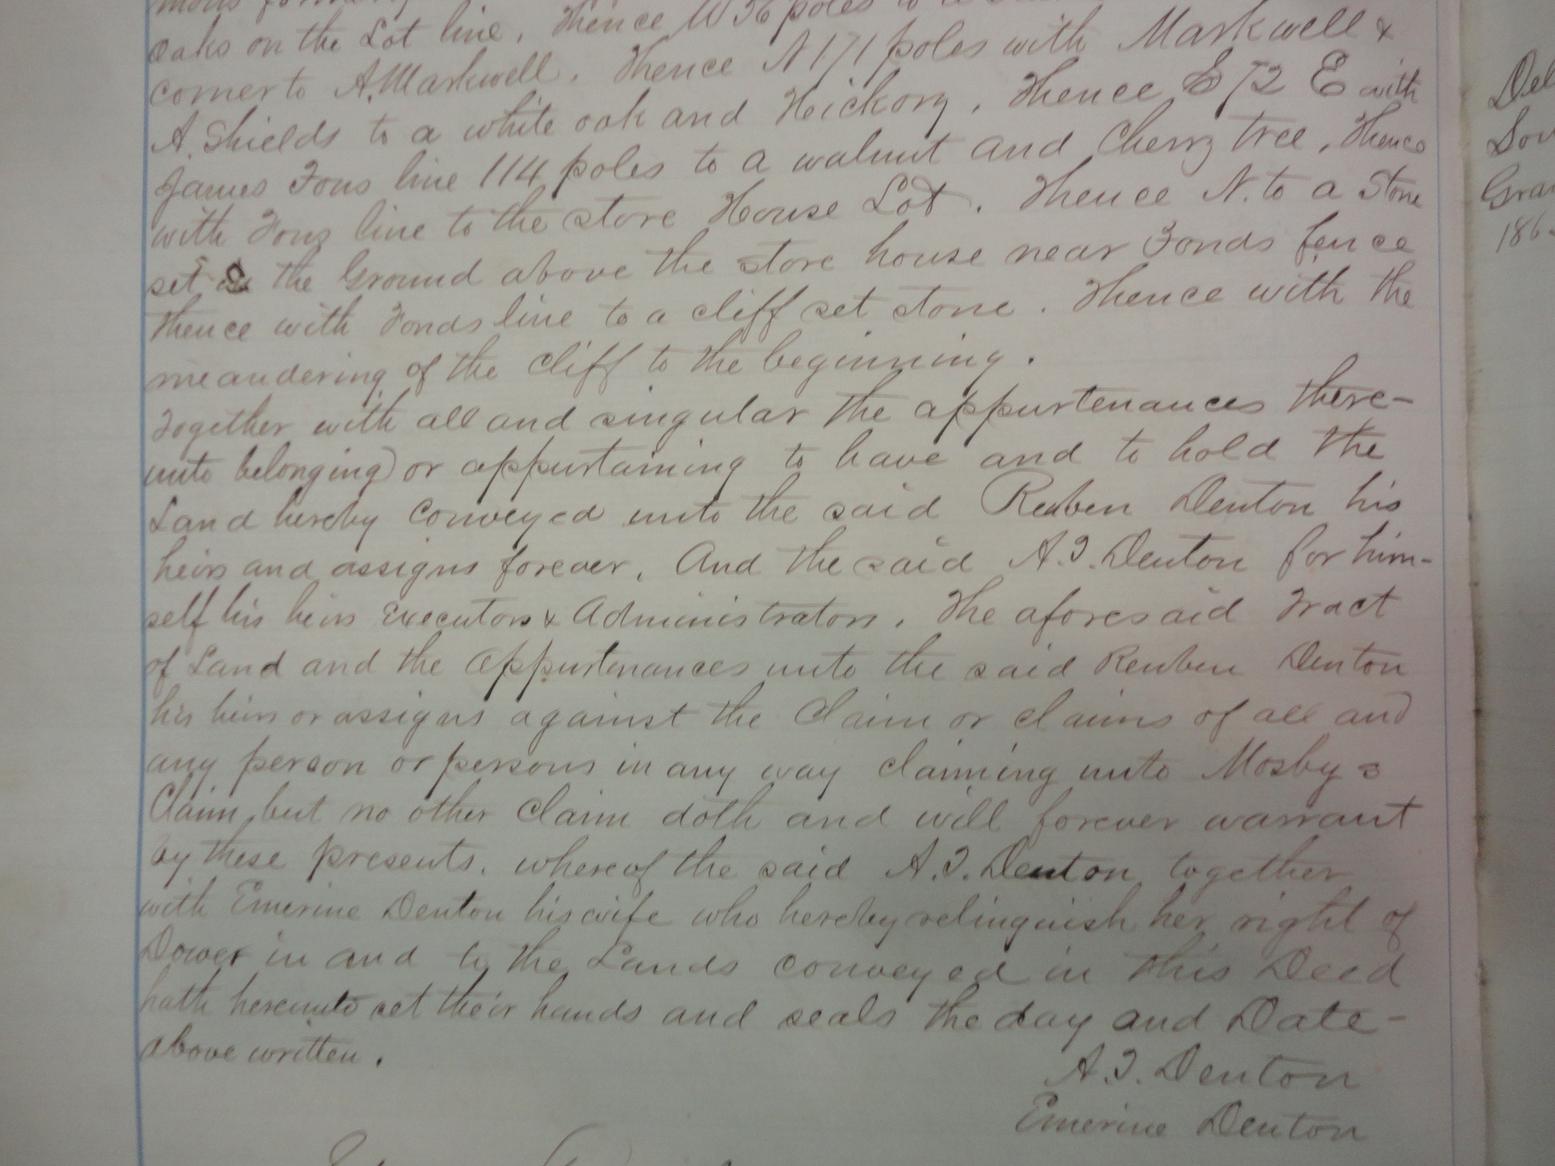 Oaks on the Lot line, Thence W 56 poles to a
corner to A. Markwell. Thence N 171 poles with Markwell &
A. Shields to a white oak and Hickory, Thence S 72 E with
James Fons line 114 poles to a walnut and Cherry tree, Thence
with Fons line to the store House Lot. Thence N. to a Stone
set in the Ground above the store house near Fonds fence
Thence with Fonds line to a cliff set stone. Thence with the
meandering of the Cliff to the beginning.
Together with all and singular the appurtenances there-
unto belonging or appurtaining to have and to hold the
Land hereby Conveyed unto the said Reuben Denton his
heirs and assigns forever, And the said A.J. Denton for him-
self his heirs Executors & Administrators, The aforesaid Tract
of Land and the Appurtenances unto the said Reuben Denton
his heirs or assigns against the Claim or claims of all and
any person or persons in any way claiming unto Mosbys
Claim, but no other Claim doth and will forever warrant
by these presents. whereof the said A.J. Denton together
with Emerine Denton his wife who hereby relinguish her right of
Dower in and to the Lands conveyed in this Deed
hath hereunto set their hands and seals the day and Date-
above written.
A.J. Denton
Emerine Denton
Del
Gra
186